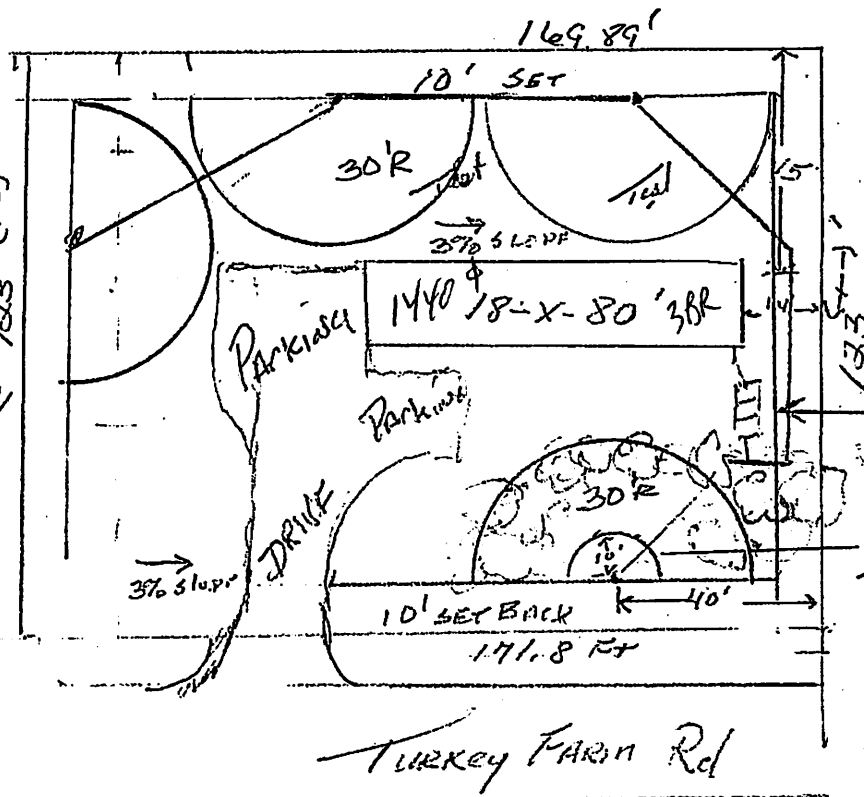 169.89'
10' SET
30'R
Test
Test
15
3% SLOPE
1440 18-X-80' 3BR
14
PARKING
Parking
30'R
DRIVE
10'
3% Slope
40'
10' SET BACK
171.8 FT
TURKEY FARM Rd